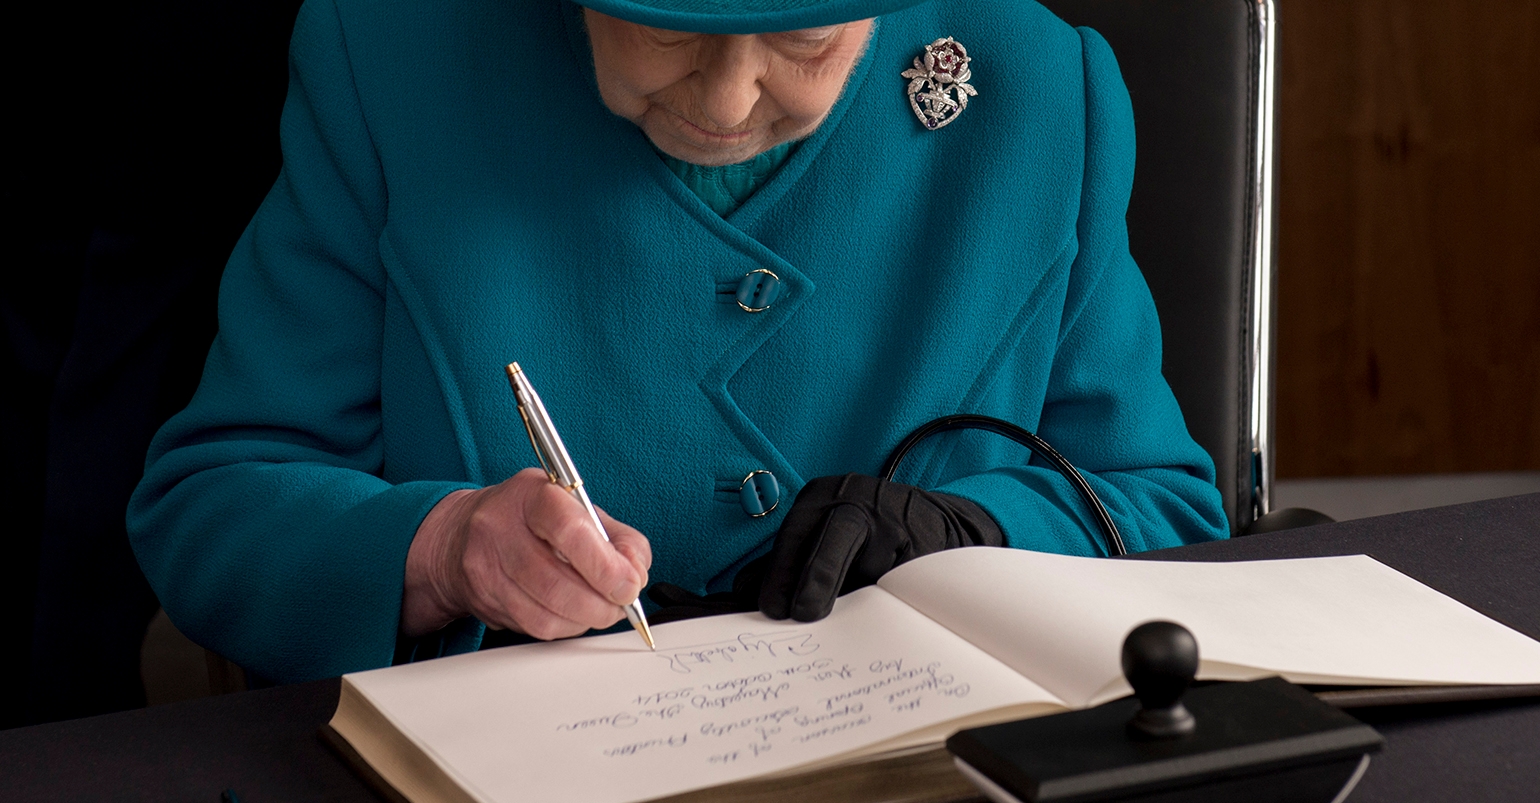 On the occasion of the
Official Opening of
International Security Printers
by Her Majesty The Queen
30th October 2014
Elizabeth R